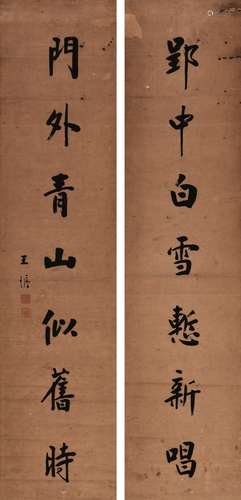 郢中白雪慙新唱
門外青山似舊時